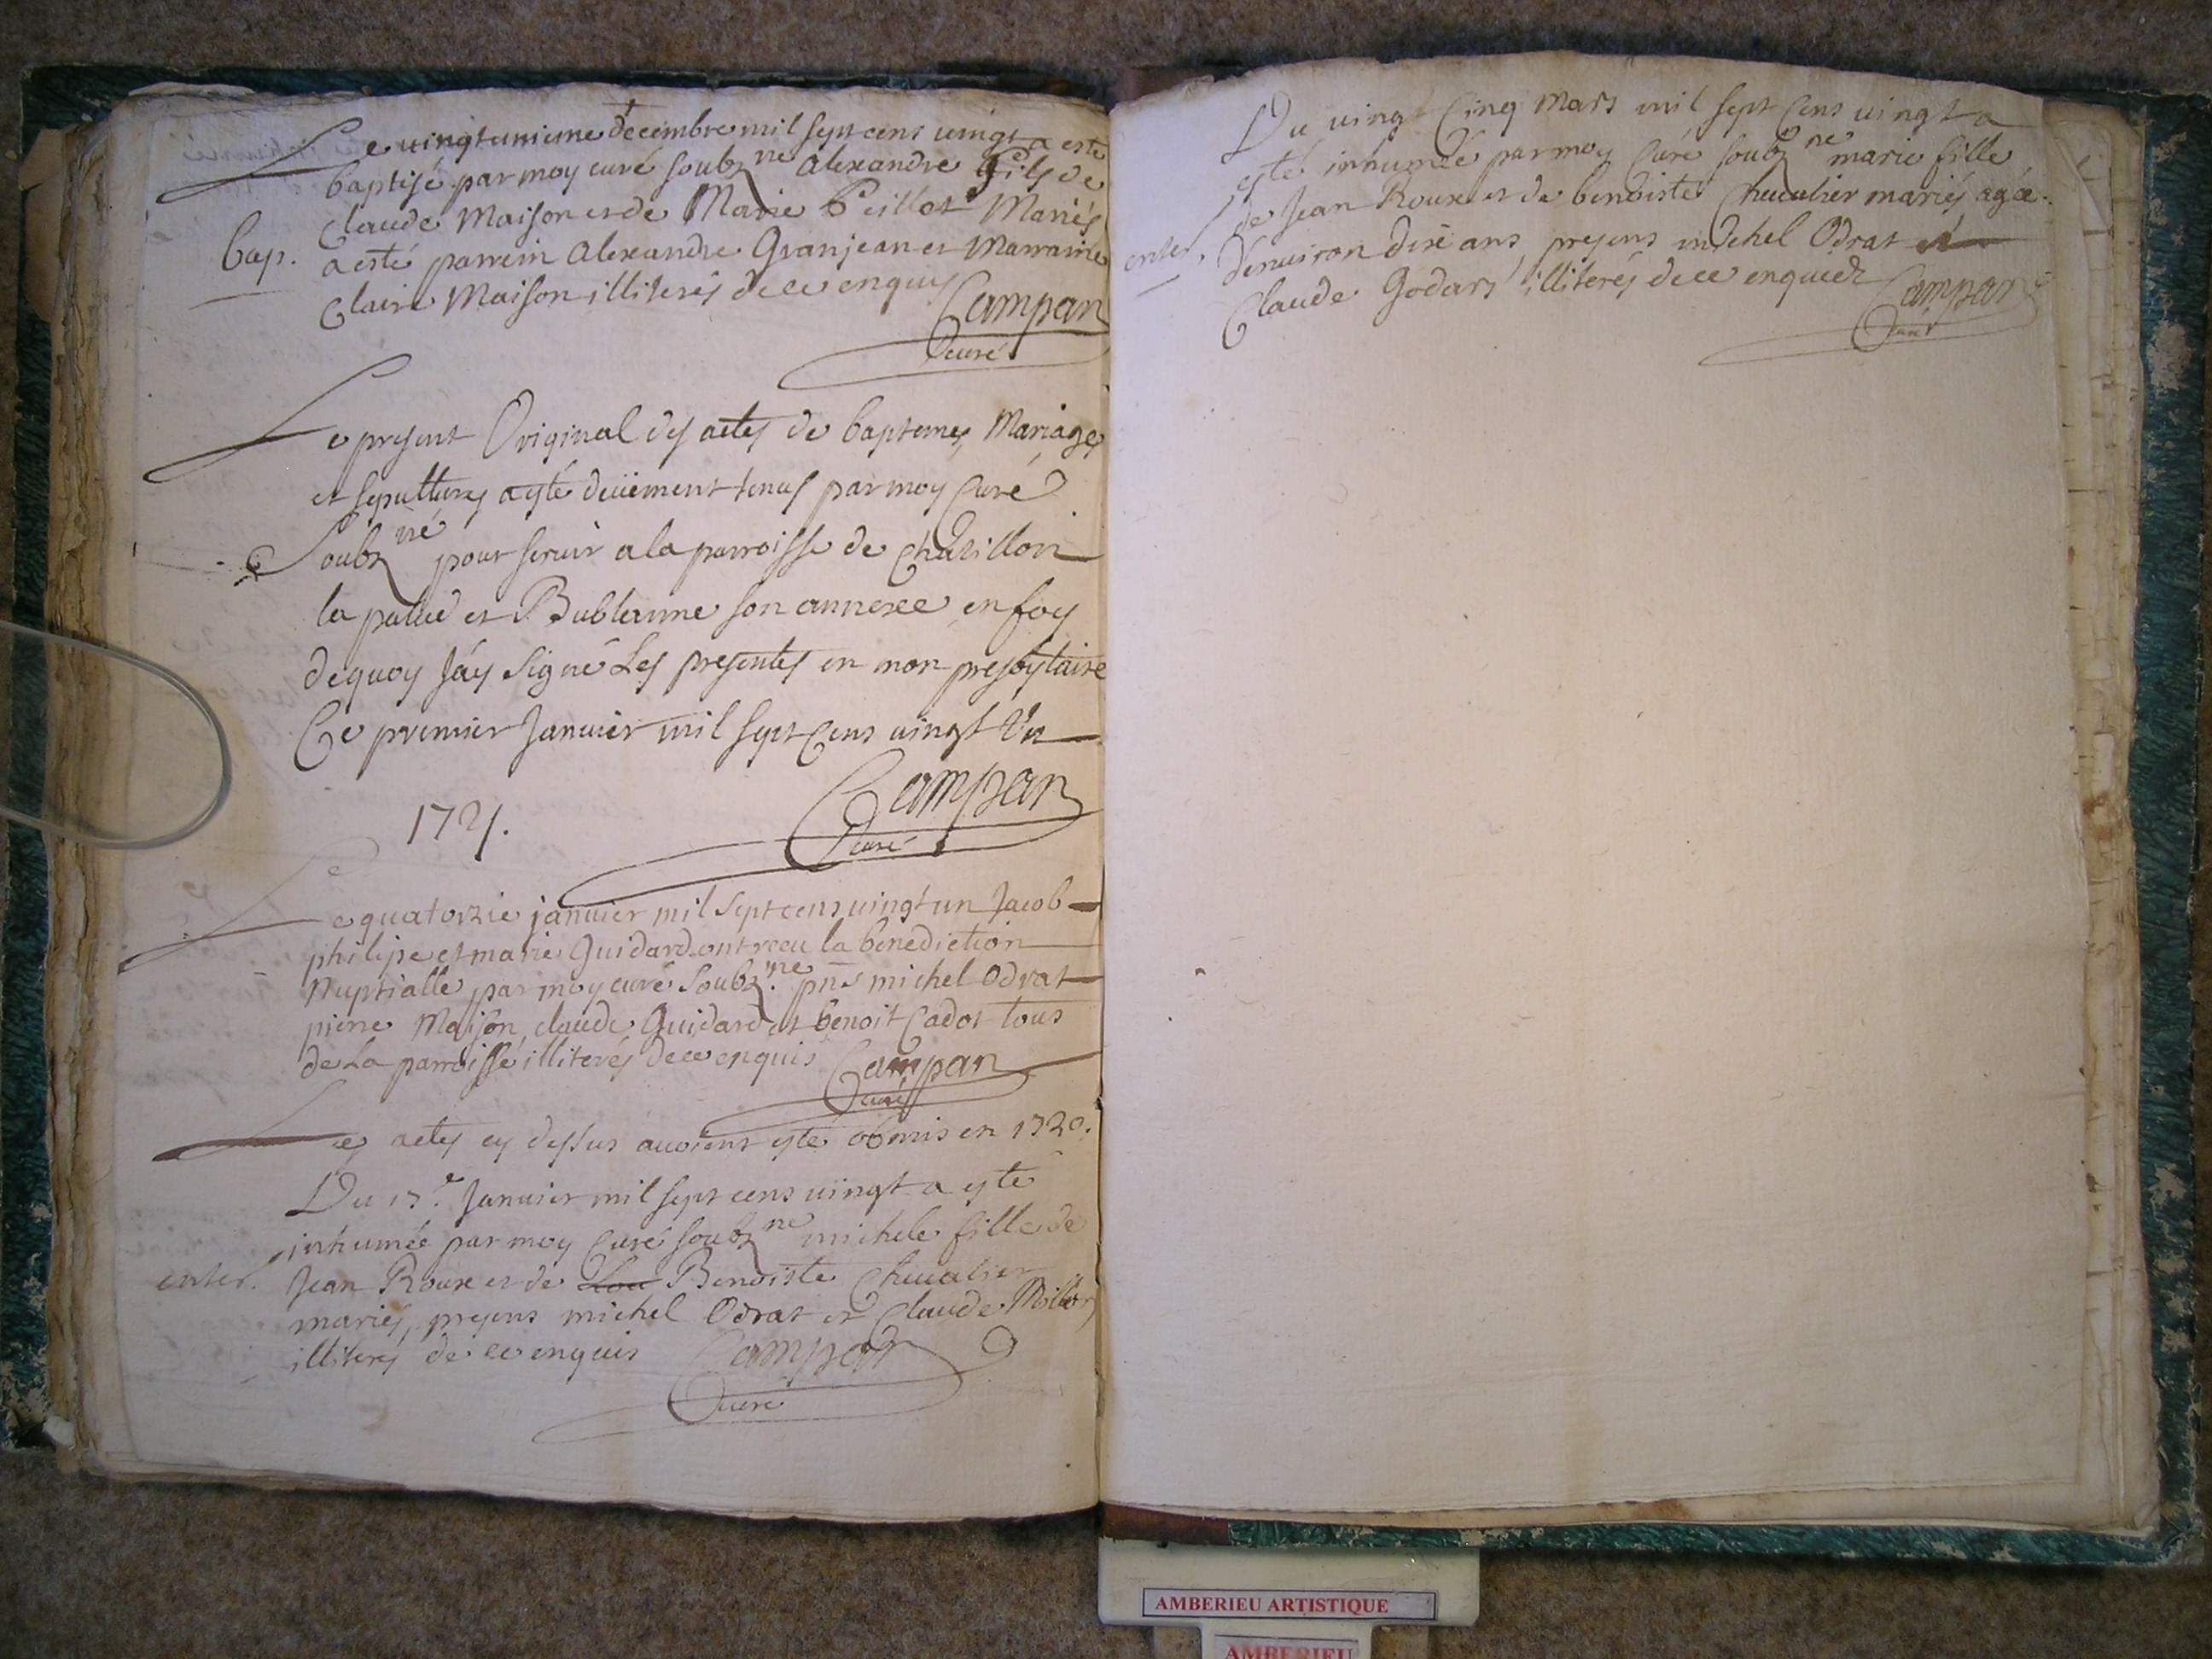 Le vingtunieme decembre mil sept cens vingt a esté
baptisé par moy curé soubz.né Alexandre fils de
Claude Maison et de Marie Peillot Mariés
bap.
a esté parrein Alexandre Granjean et Marraine
Claire Maison illiterés de ce enquis
Campan
curé
Le present Original des actes de baptemes, Mariages
et sepultures a esté deüement tenus par moy Curé
Soubz.né pour servir a la parroisse de Chatillon
la palud et Bublanne son annexe, en foy
dequoy J'ay Signé Les presentes en mon presbytaire
Ce premier Janvier mil sept Cens vingt Un
Campan
curé
1721.
Le quatorzie janvier mil sept cens vingt un Jacob
philipe et marie Guidard ont receu la benediction
Nuptialle par moy curé Soubz.né pns michel Odrat
pierre Maison, claude Guidard et benoit Cadot tous
de La parroisse illiterés de ce enquis
Campan
curé
Les actes cy dessus avoient esté obmis en 1720.
Du 17.e Janvier mil sept cens vingt a esté
inhumée par moy Curé soubz.né michele fille de
enter.
Jean Roux et de Benoiste Chevalier
mariés, presens michel Odrat et Claude
illiterés de ce enquis
Campan
curé
Du vingt Cinq Mars mil sept Cens vingt a
esté inhumée par moy Curé soubz.né marie fille
de Jean Roux et de benoiste Chevalier mariés agée
enter.
d'environ dixe ans, presens michel Odrat et
Claude Godard illiterés de ce enquis
Campan
Curé
AMBERIEU ARTISTIQUE
AMBERIEU